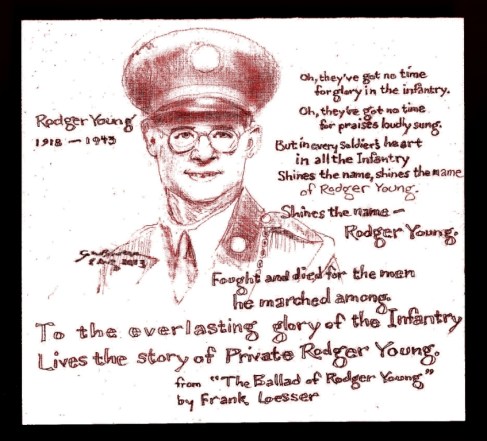 Rodger Young
1918 – 1943
Oh, they've got no time
for glory in the infantry.
Oh, they've got no time
for praises loudly sung.
But in every soldier's heart
in all the Infantry
Shines the name, shines the name
of Rodger Young.
Shines the name –
Rodger Young.
Fought and died for the men
he marched among.
To the everlasting glory of the Infantry
Lives the story of Private Rodger Young.
from "The Ballad of Rodger Young"
by Frank Loesser